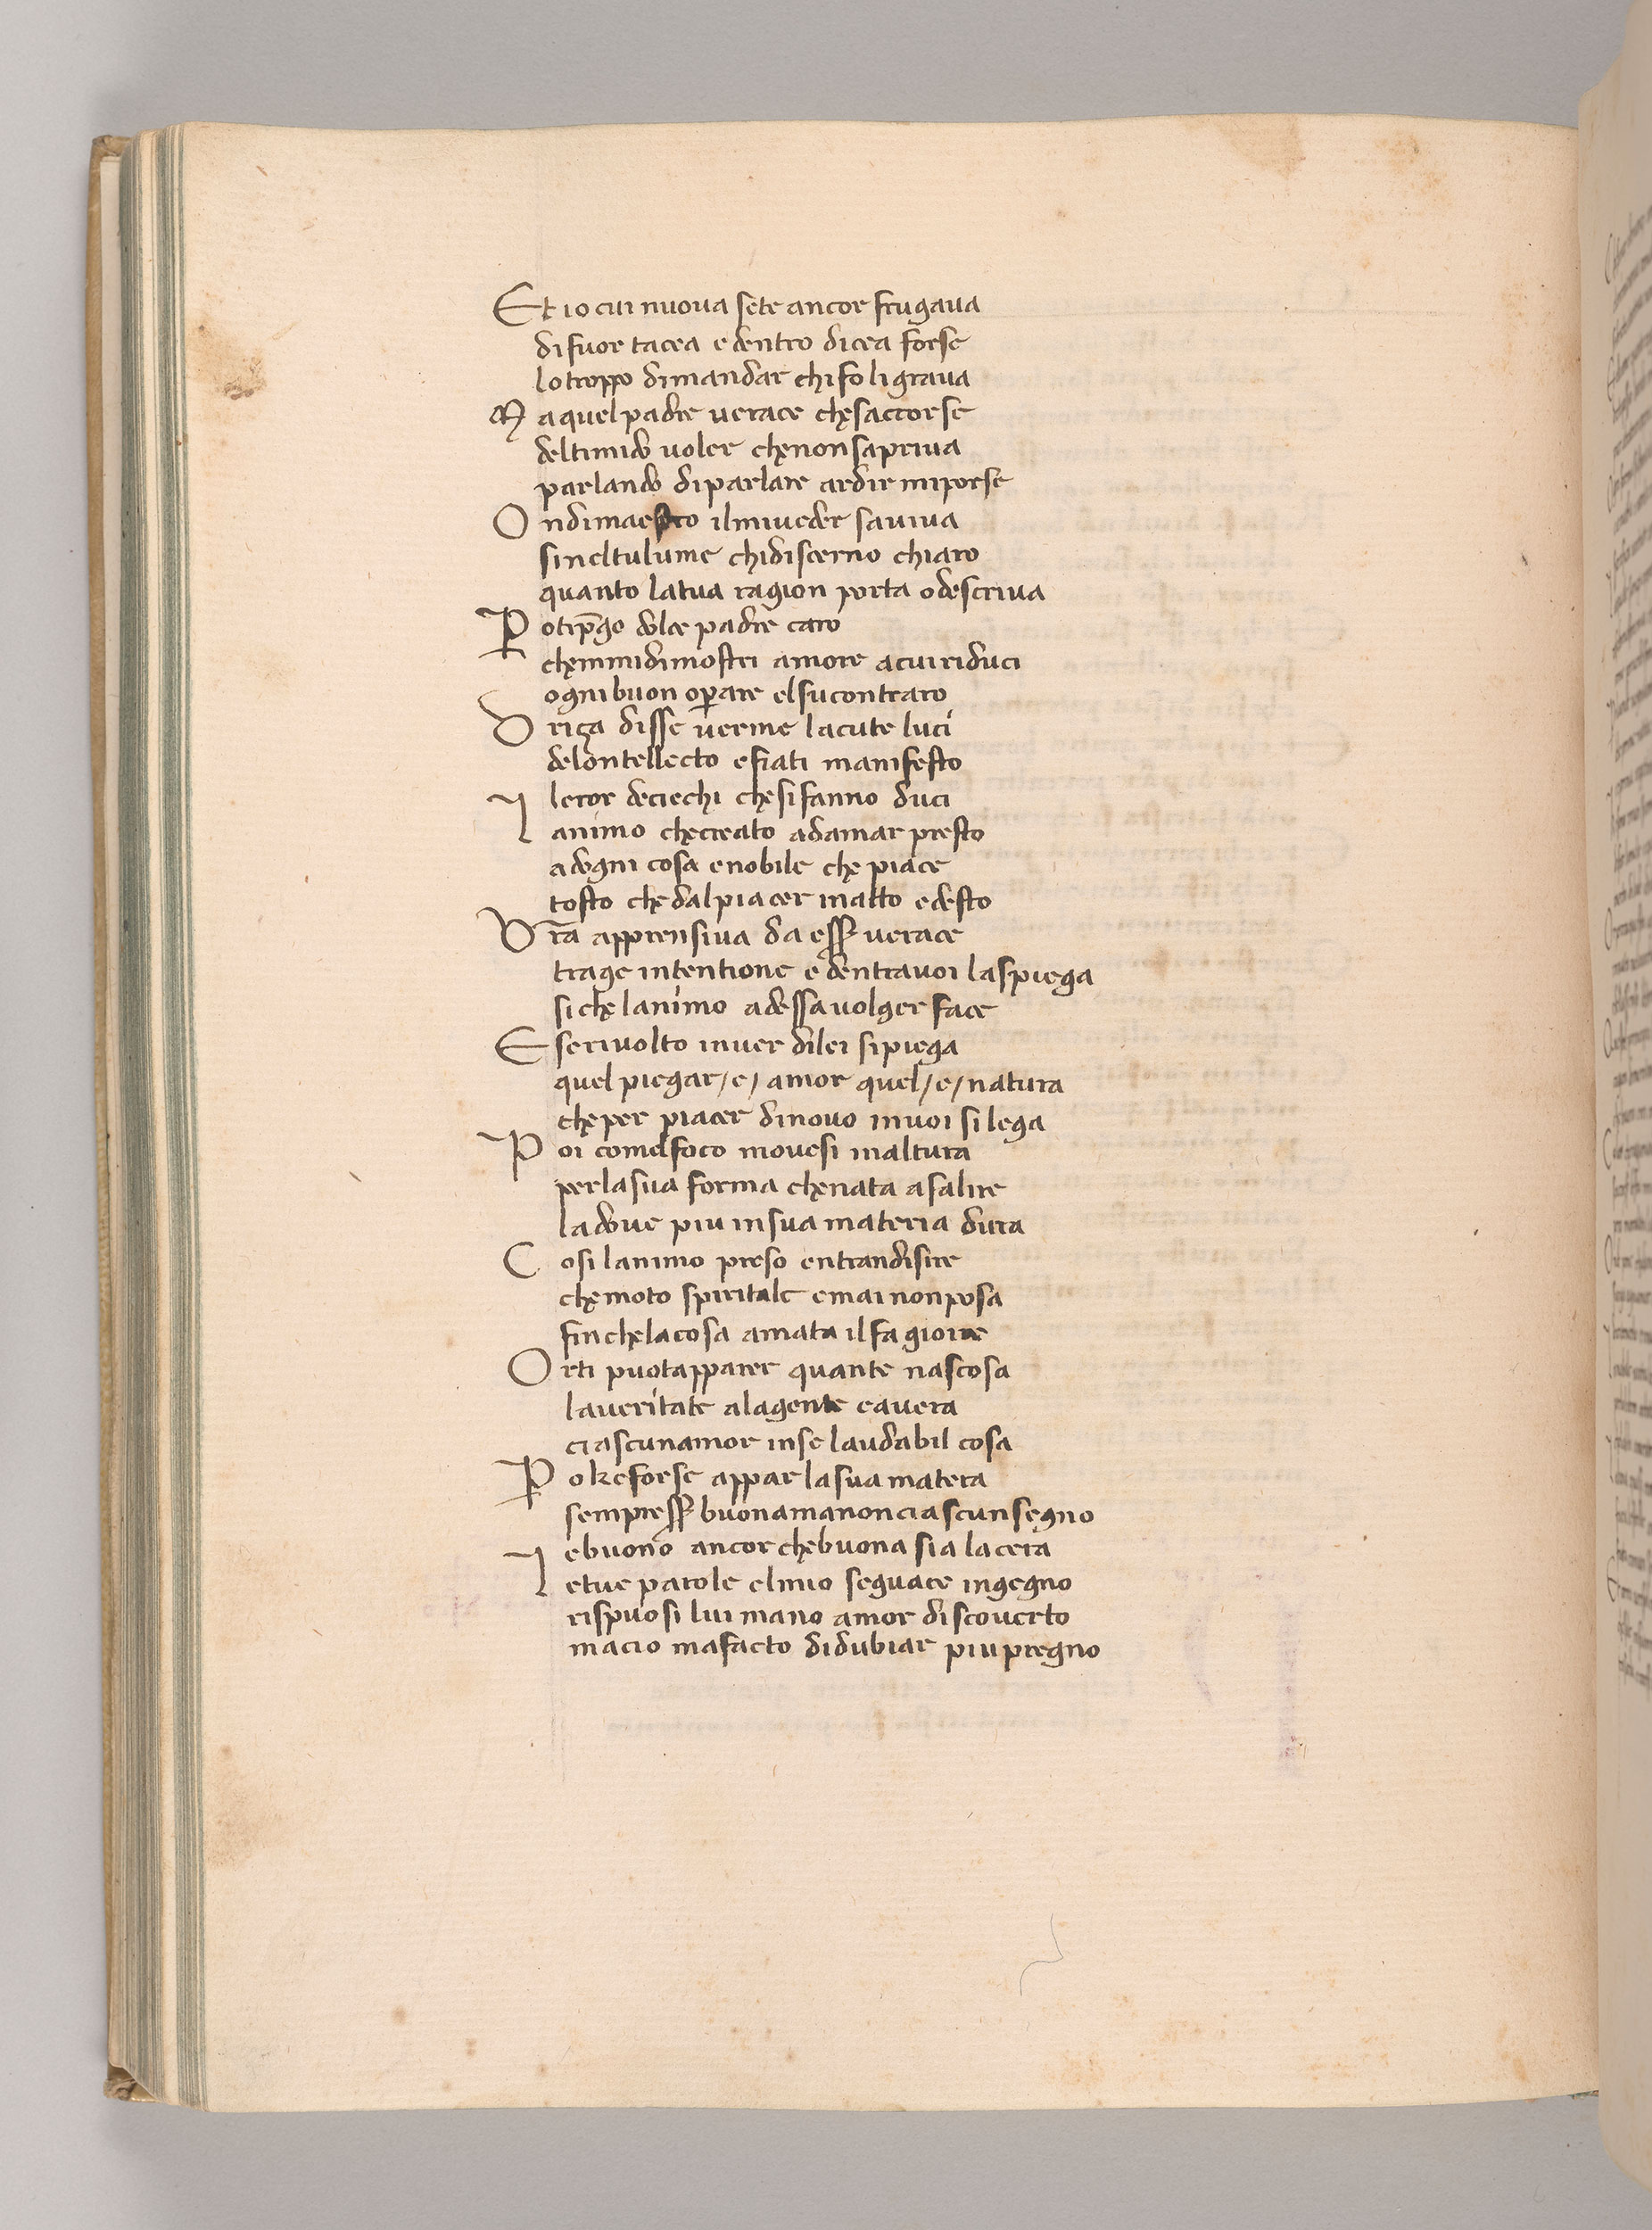 Et io cui nuova sete ancor frugava
di fuor tacea e dentro dicea forse
lo troppo dimandar chi fo li grava
M a quel padre verace che saccorse
del timido voler che non sapriva
parlando di parlare ardir mi porse
O ndi maestro il mi veder saviva
si nel tu lume chi discerno chiaro
quanto la tua ragion porta o descriva
P o ti p̄go dolce padre caro
che mmi dimostri amore a cui riduci
ogni buon oꝑare el su contraro
D riça disse ver me lacute luci
de lontellecto e fiati manifesto
leror de ciechi che si fanno duci
I animo che creato ad amar presto
ad ogni cosa e nobile che piace
tosto che dal piacer in atto e desto
V r̄a apprensiva da ess̄ verace
trage intentione e dentra voi la spiega
si che lanimo ad essa volger face
E se rivolto inver di lei si piega
quel piegar/e/ amor quel/e/ natura
che per piacer di novo in voi si lega
P oi comel foco movesi in altura
per la sua forma che nata a salire
la dove piu in sua materia dura
C osi lanimo preso entra n disire
che moto spiritale e mai non posa
fin che la cosa amata il fa gioire
O r ti puot apparer quante nascosa
la veritate a la gente cavera
ciascun amor in se laudabil cosa
P o ke forse appar la sua matera
sempre ess̄ buona ma non ciascun segno
e buono ancor che buona sia la cera
I e tue parole el mio seguace ingegno
rispuosi lui mano amor discoverto
ma cio ma facto di dubiar piu pregno